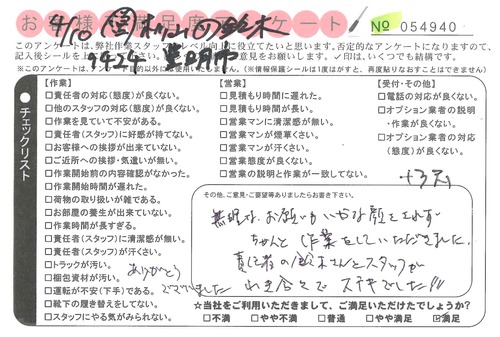 お客様満足度アンケート
№ 054940
4/10
豊明市
このアンケートは、弊社作業スタッフのレベル向上に役立てたいと思います。否定的なアンケートになりますので、
記入後シールを上から貼って ご意見をお願いします。✓印は、いくつでも結構です。
※このアンケートは、 以外には使用いたしません。(※情報保護シールは1度はがすと、再度貼りなおすことはできません)
●チェックリスト
【作業】
□責任者の対応(態度)が良くない。
□他のスタッフの対応(態度)が良くない。
□作業を見ていて不安がある。
□責任者(スタッフ)に好感が持てない。
□お客様への挨拶が出来ていない。
□ご近所への挨拶・気遣いが無い。
□作業開始前の内容確認がなかった。
□作業開始時間が遅れた。
□荷物の取り扱いが雑である。
□お部屋の養生が出来ていない。
□作業時間が長すぎる。
□責任者(スタッフ)に清潔感が無い。
□責任者(スタッフ)が汗くさい。
□トラックが汚い。
□梱包資材が汚い。
□運転が不安(下手)である。
□靴下の履き替えをしてない。
□スタッフにやる気がみられない。
【営業】
□見積もり時間に遅れた。
□見積もり時間が長い。
□営業マンに清潔感が無い。
□営業マンが煙草くさい。
□営業マンが汗くさい。
□営業態度が良くない。
□営業の説明と作業が一致してない。
【受付・その他】
□電話の対応が良くない。
□オプション業者の説明
・作業が良くない。
□オプション業者の対応
(態度)が良くない。
その他、ご意見・ご要望等ありましたらお書き下さい。
無理なお願いもいやな顔もせず
ちゃんと作業をしていただきました。
責任者の鈴木さんとスタッフが
ステキでした!!
ありがとう
ございました
☆当社をご利用いただきまして、ご満足いただけたでしょうか?
□不満 □やや不満 □普通 □やや満足 ☑満足